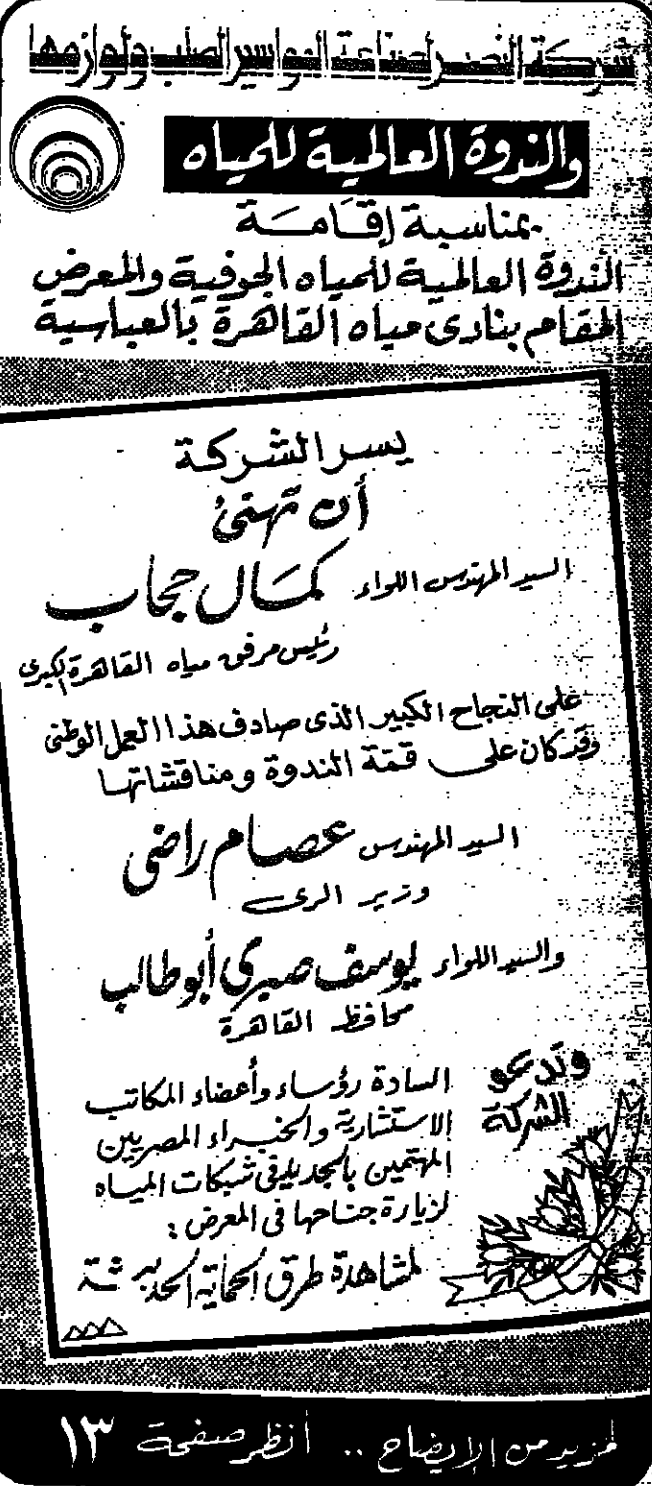 شركة النصر لصناعة المواسير الصلب ولوازمها
والندوة العالمية للمياه
بمناسبة إقامة
الندوة العالمية للمياه الجوفية والمعرض
المقام بنادى مياه القاهرة بالعباسية
يسر الشركة
أن تهنئ
السيد المهندس اللواء كمال حجاب
رئيس مرفق مياه القاهرة الكبرى
على النجاح الكبير الذى صادف هذا العمل الوطنى
وقد كان على قمة الندوة ومناقشاتها
السيد المهندس عصام راضى
وزير الرى
والسيد اللواء يوسف صبرى أبو طالب
محافظ القاهرة
وتدعو الشركة
السادة رؤساء وأعضاء المكاتب
الاستشارية والخبراء المصريين
المهتمين بالجديد فى شبكات المياه
لزيارة جناحها فى المعرض :
لمشاهدة طرق الحماية الحديثة
لمزيد من الإيضاح .. أنظر صفحة ١٣